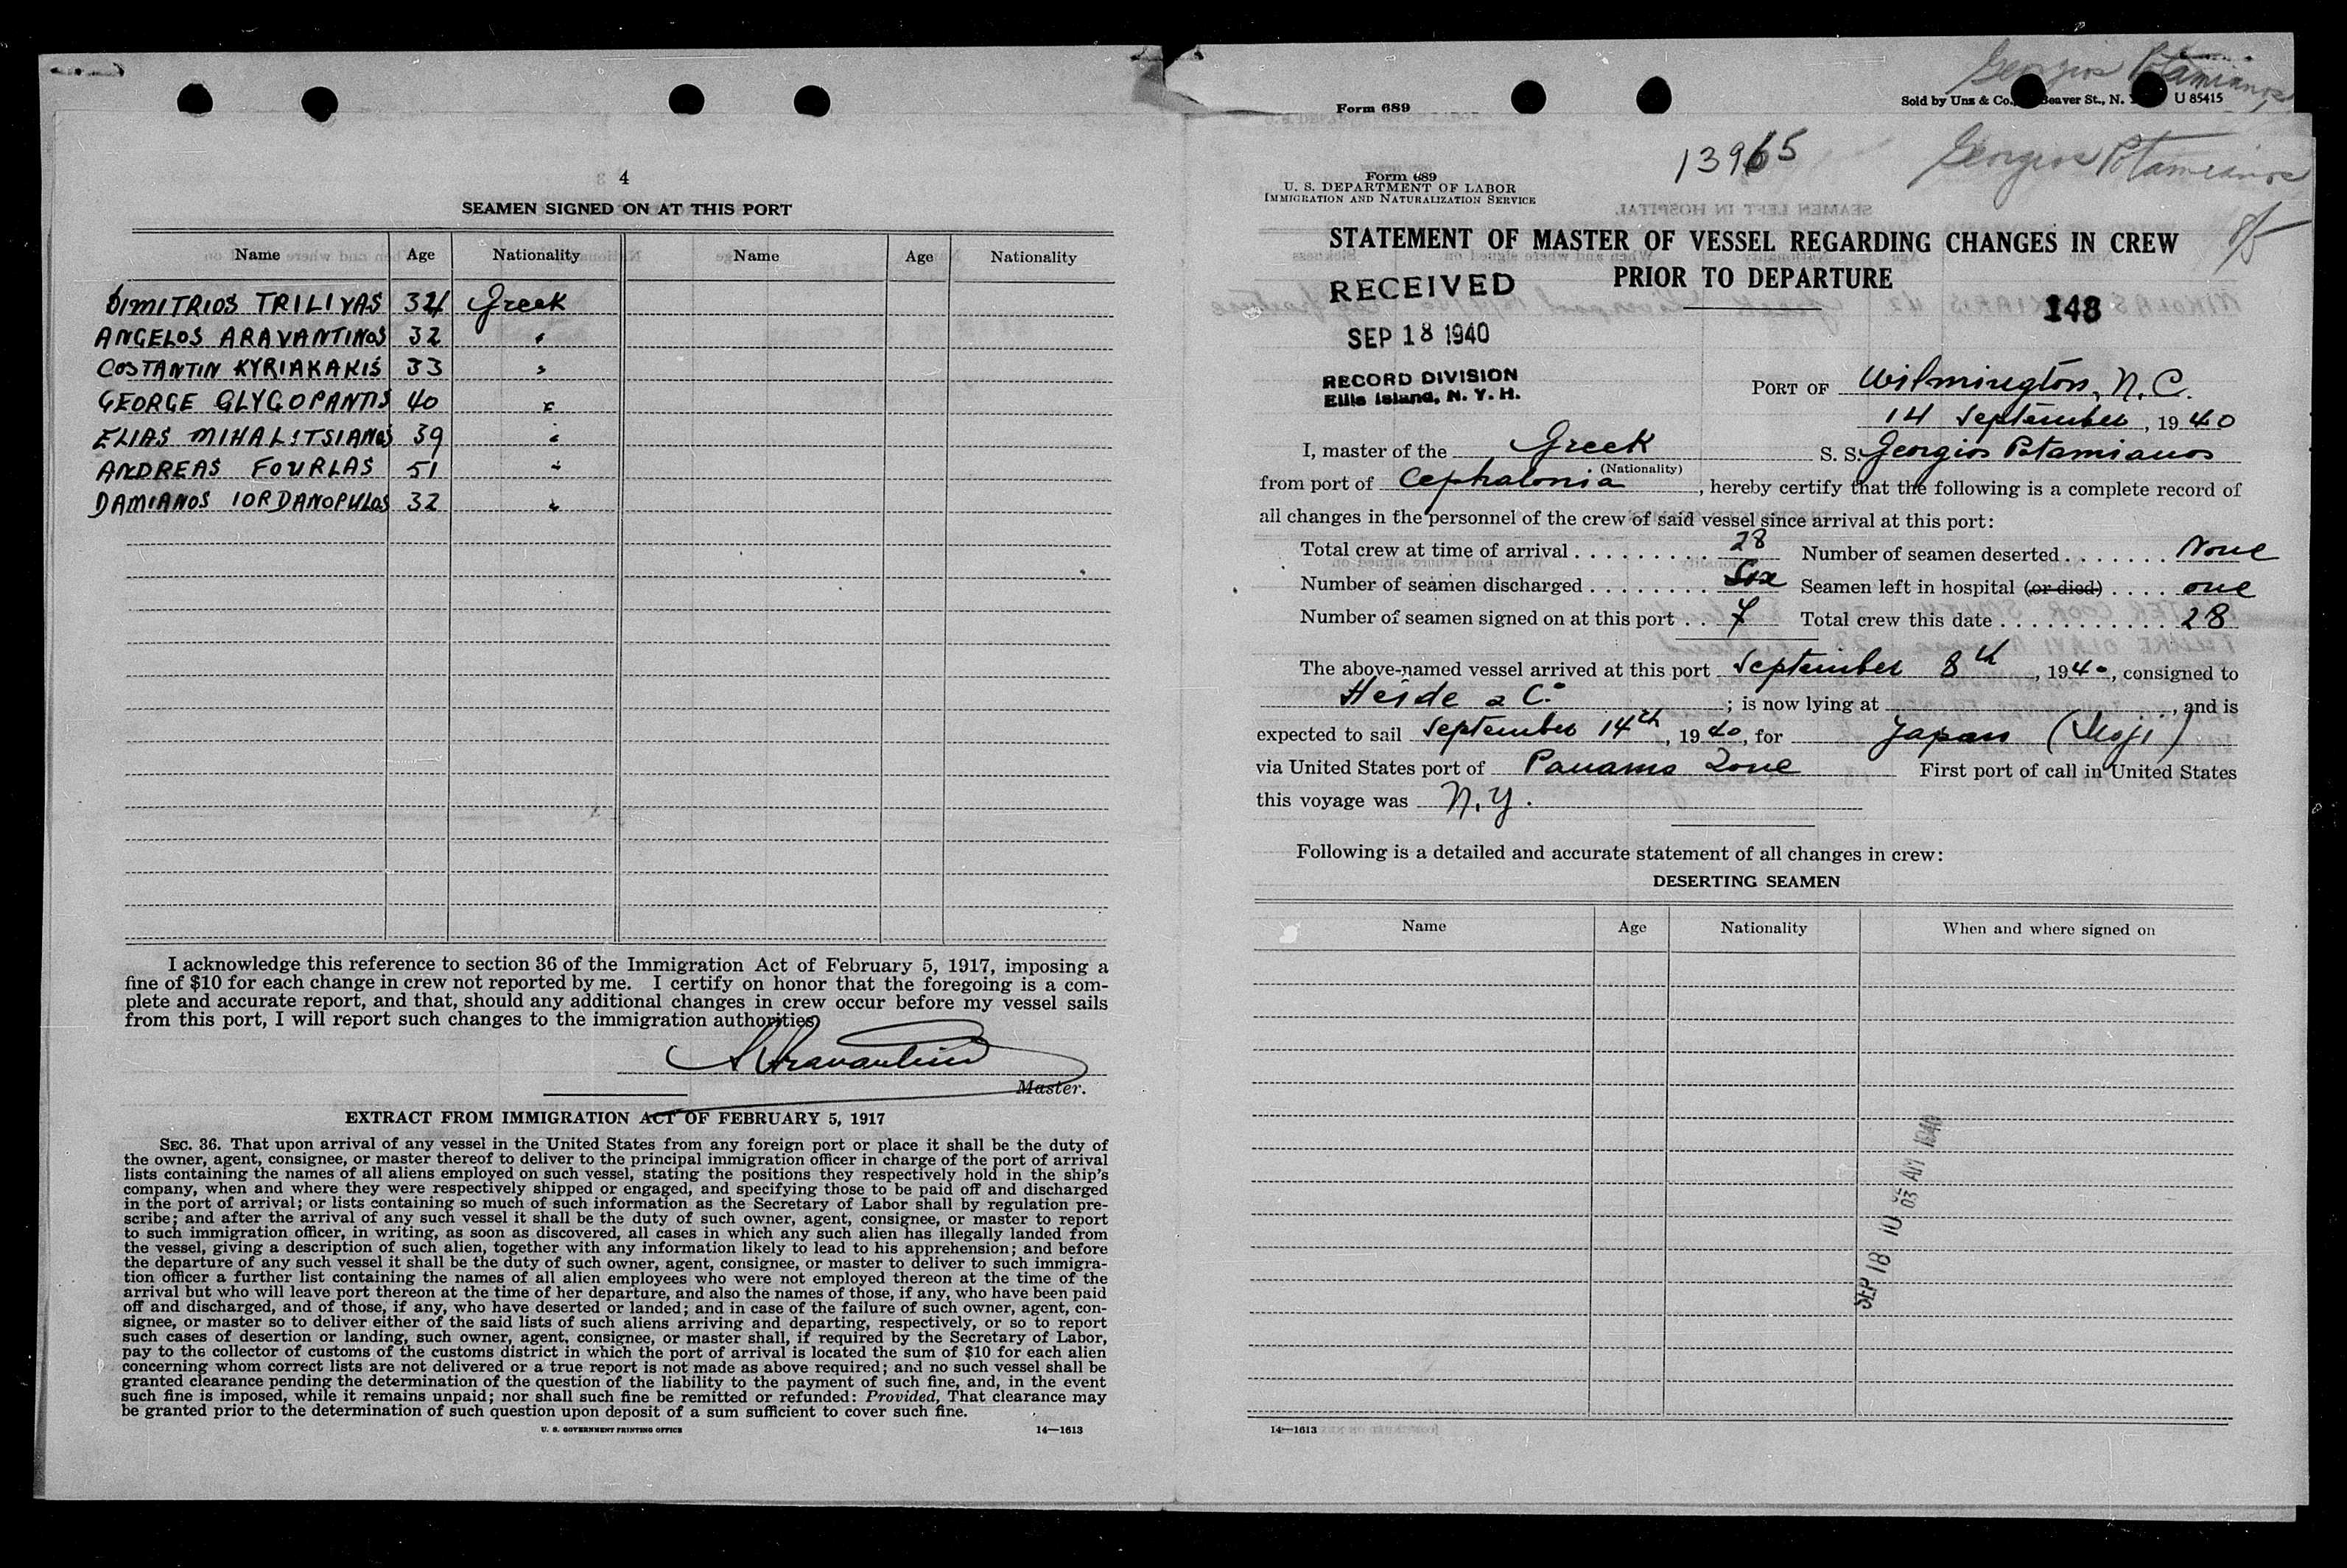 4
SEAMEN SIGNED ON AT THIS PORT
Name Age Nationality Name Age Nationality
DIMITRIOS TRILIVAS 34 Greek
ANGELOS ARAVANTINOS 32 "
COSTANTIN KYRIAKAKIS 33 "
GEORGE GLYGOPANTIS 40 "
ELIAS MIHALITSIANOS 39 "
ANDREAS FOURLAS 51 "
DAMIANOS IORDANOPULOS 32 "
I acknowledge this reference to section 36 of the Immigration Act of February 5, 1917, imposing a
fine of $10 for each change in crew not reported by me. I certify on honor that the foregoing is a com-
plete and accurate report, and that, should any additional changes in crew occur before my vessel sails
from this port, I will report such changes to the immigration authorities.
Master.
EXTRACT FROM IMMIGRATION ACT OF FEBRUARY 5, 1917
SEC. 36. That upon arrival of any vessel in the United States from any foreign port or place it shall be the duty of
the owner, agent, consignee, or master thereof to deliver to the principal immigration officer in charge of the port of arrival
lists containing the names of all aliens employed on such vessel, stating the positions they respectively hold in the ship's
company, when and where they were respectively shipped or engaged, and specifying those to be paid off and discharged
in the port of arrival; or lists containing so much of such information as the Secretary of Labor shall by regulation pre-
scribe; and after the arrival of any such vessel it shall be the duty of such owner, agent, consignee, or master to report
to such immigration officer, in writing, as soon as discovered, all cases in which any such alien has illegally landed from
the vessel, giving a description of such alien, together with any information likely to lead to his apprehension; and before
the departure of any such vessel it shall be the duty of such owner, agent, consignee, or master to deliver to such immigra-
tion officer a further list containing the names of all alien employees who were not employed thereon at the time of the
arrival but who will leave port thereon at the time of her departure, and also the names of those, if any, who have been paid
off and discharged, and of those, if any, who have deserted or landed; and in case of the failure of such owner, agent, con-
signee, or master so to deliver either of the said lists of such aliens arriving and departing, respectively, or so to report
such cases of desertion or landing, such owner, agent, consignee, or master shall, if required by the Secretary of Labor,
pay to the collector of customs of the customs district in which the port of arrival is located the sum of $10 for each alien
concerning whom correct lists are not delivered or a true report is not made as above required; and no such vessel shall be
granted clearance pending the determination of the question of the liability to the payment of such fine, and, in the event
such fine is imposed, while it remains unpaid; nor shall such fine be remitted or refunded: Provided, That clearance may
be granted prior to the determination of such question upon deposit of a sum sufficient to cover such fine.
U. S. GOVERNMENT PRINTING OFFICE 14—1613
Georgios Potamianos
Form 689 Sold by Unz & Co., Beaver St., N. Y. U 85415
13965 Georgios Potamianos
Form 689
U. S. DEPARTMENT OF LABOR
IMMIGRATION AND NATURALIZATION SERVICE
STATEMENT OF MASTER OF VESSEL REGARDING CHANGES IN CREW
PRIOR TO DEPARTURE
RECEIVED
148
SEP 18 1940
RECORD DIVISION
Ellis Island, N. Y. H.
PORT OF Wilmington, N.C.
14 September, 1940
I, master of the Greek S. S. Georgios Potamianos
(Nationality)
from port of Cephalonia, hereby certify that the following is a complete record of
all changes in the personnel of the crew of said vessel since arrival at this port:
Total crew at time of arrival . . . . . . . . . 28 Number of seamen deserted . . . . . . None
Number of seamen discharged . . . . . . . . Six Seamen left in hospital (or died) . . . . one
Number of seamen signed on at this port . . 7 Total crew this date . . . . . . . . . . . 28
The above-named vessel arrived at this port September 8th, 1940, consigned to
Heide & Co; is now lying at , and is
expected to sail September 14th, 1940, for Japan (Moji)
via United States port of Panama Zone First port of call in United States
this voyage was N.Y.
Following is a detailed and accurate statement of all changes in crew:
DESERTING SEAMEN
Name Age Nationality When and where signed on
SEP 18 10 03 AM 1940
14—1613